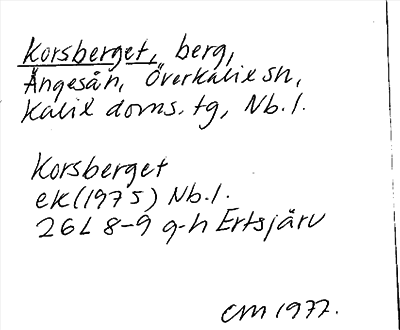 Korsberget, berg,
Ängesån, Överkalix sn,
Kalix doms. tg, Nb. l.
Korsberget
ek (1975) Nb. l.
26L 8-9 g-h Ertsjärv
CM 1977.